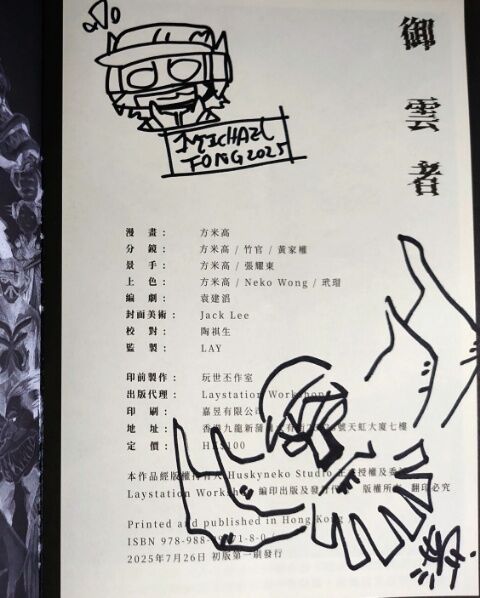 御雲者
MICHAEL
FONG 2025
漫畫： 方米高
分鏡： 方米高 / 竹官 / 黃家權
景手： 方米高 / 張耀東
上色： 方米高 / Neko Wong / 玳瑁
編劇： 袁建滔
封面美術： Jack Lee
校對： 陶祺生
監製： LAY
印前製作： 玩世丕作室
出版代理： Laystation Workshop
印刷： 嘉昱有限公司
地址： 香港九龍新蒲崗 號天虹大廈七樓
定價： HK$100
本作品經版權持有人 Huskyneko Studio 授權及委
Laystation Workshop 編印出版及發行 版權所 翻印必究
Printed and published in Hong Kong
ISBN 978-988- 71-8-0
2025年7月26日 初版第一刷發行